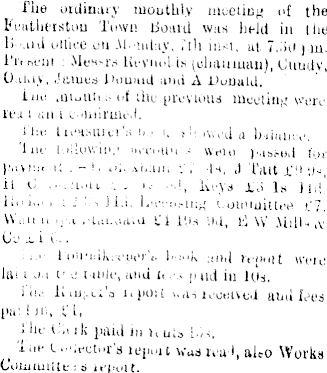 The ordinary monthly meeting of the
Featherston Town Board was held in the
Board office on Monday, 7th inst, at 7.30 pm.
Present : Messrs Reynolds (chairman), Cundy,
Oakly, James Donald and A Donald.
The minutes of the previous meeting were
read and confirmed.
The Treasurer's book showed a balance.
The following accounts were passed for
payment J Tait
Keys £3 1s 11d,
Licensing Committee £7,
Standard £4 19s 9d, E W Mills &
Co
The Poundkeeper's book and report were
laid on the table, and fees paid in 10s.
The Ranger's report was received and fees
paid in, £4.
The Clerk paid in rents
The Collector's report was read, also Works
Committee's report.